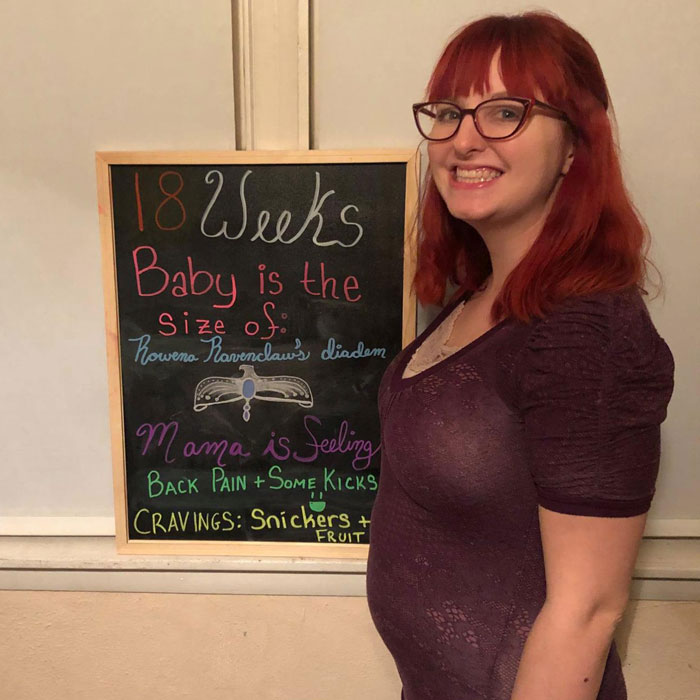 18 Weeks
Baby is the
size of:
Rowena Ravenclaw's diadem
Mama is feeling
BACK PAIN + SOME KICKS
CRAVINGS: Snickers +
FRUIT